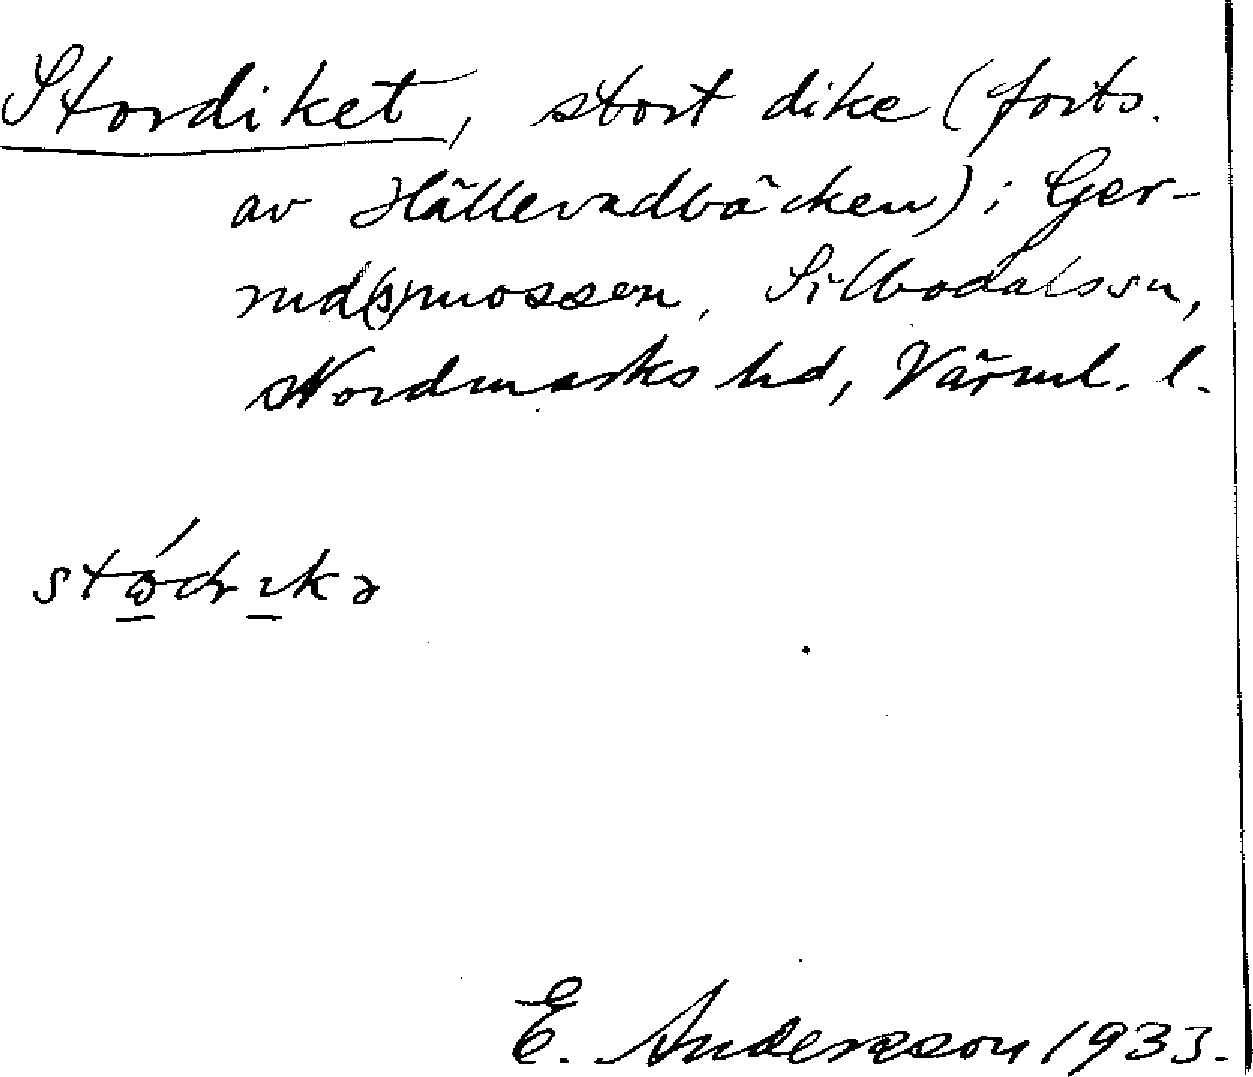 Stordiket, stort dike (forts.
av Hällevadbäcken) i Ger-
rud(s)mossen, Silbodals sn,
Nordmarks hd, Värml. l.
E. Andersson 1933.